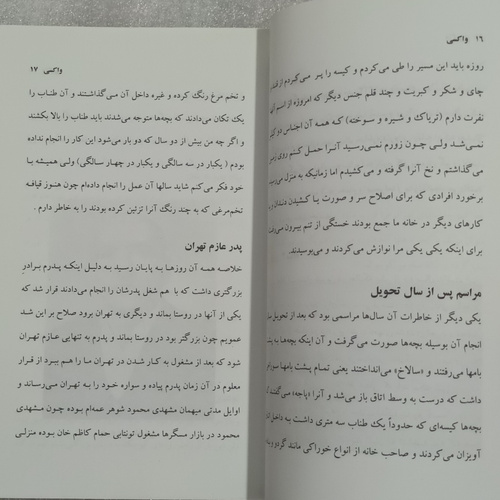 ۱۶ واکسی
روزه باید این مسیر را طی می‌کردم و کیسه را پر می‌کردم از قند
چای و شکر و کبریت و چند قلم جنس دیگر که امروزه از اسم آن
نفرت دارم (تریاک و شیره و سوخته) که همه آن اجناس دو کیلو
نمی‌شد ولی چون زورم نمی‌رسید آنرا حمل کنم روی زمین
می‌گذاشتم و نخ آنرا گرفته و می‌کشیدم اما زمانیکه به منزل می‌رسیدم
برخورد افرادی که برای اصلاح سر و صورت یا کشیدن دندان و
کارهای دیگر در خانه ما جمع بودند خستگی از تنم بیرون می‌رفت
برای اینکه یکی یکی مرا نوازش می‌کردند و می‌بوسیدند.
مراسم پس از سال تحویل
یکی دیگر از خاطرات آن سال‌ها مراسمی بود که بعد از تحویل سال
انجام آن بوسیله بچه‌ها صورت می‌گرفت و آن اینکه بچه‌ها به پشت
بامها می‌رفتند و «سالاخ» می‌انداختند یعنی تمام پشت بامها سوراخی
داشت که درست به وسط اتاق باز می‌شد و آنرا «پاجه» می‌گفتند
بچه‌ها کیسه‌ای که حدوداً یک طناب سه متری داشت به داخل
آویزان می‌کردند و صاحب خانه از انواع خوراکی مانند گردو و
واکسی ۱۷
و تخم مرغ رنگ کرده و غیره داخل آن می‌گذاشتند و آن طناب را
یک تکان می‌دادند که بچه‌ها متوجه می‌شدند باید طناب را بالا بکشند
و اگر چه من بیش از دو سال که دو بار می‌شود این کار را انجام نداده
بودم (یکبار در سه سالگی و یکبار در چهار سالگی) ولی همیشه با
خود فکر می‌کنم شاید سالها آن عمل را انجام داده‌ام چون هنوز قیافه
تخم‌مرغی که به چند رنگ آنرا تزئین کرده بودند را به خاطر دارم.
پدر عازم تهران
خلاصه همه آن روزها به پایان رسید به دلیل اینکه پدرم برادر
بزرگتری داشت که با هم شغل پدرشان را انجام می‌دادند قرار شد که
یکی از آنها در روستا بماند و دیگری به تهران برود صلاح بر این شد
عمویم چون بزرگتر بود در روستا بماند و پدرم به تنهایی عازم تهران
شود که بعد از مشغول به کار شدن در تهران ما را هم ببرد از قرار
معلوم در آن زمان پدرم پیاده و سواره خود را به تهران می‌رساند و
اوایل مدتی میهمان مشهدی محمود شوهر عمه‌ام بوده چون مشهدی
محمود در بازار مسگرها مشغول تونتابی حمام کاظم خان بوده منزلی